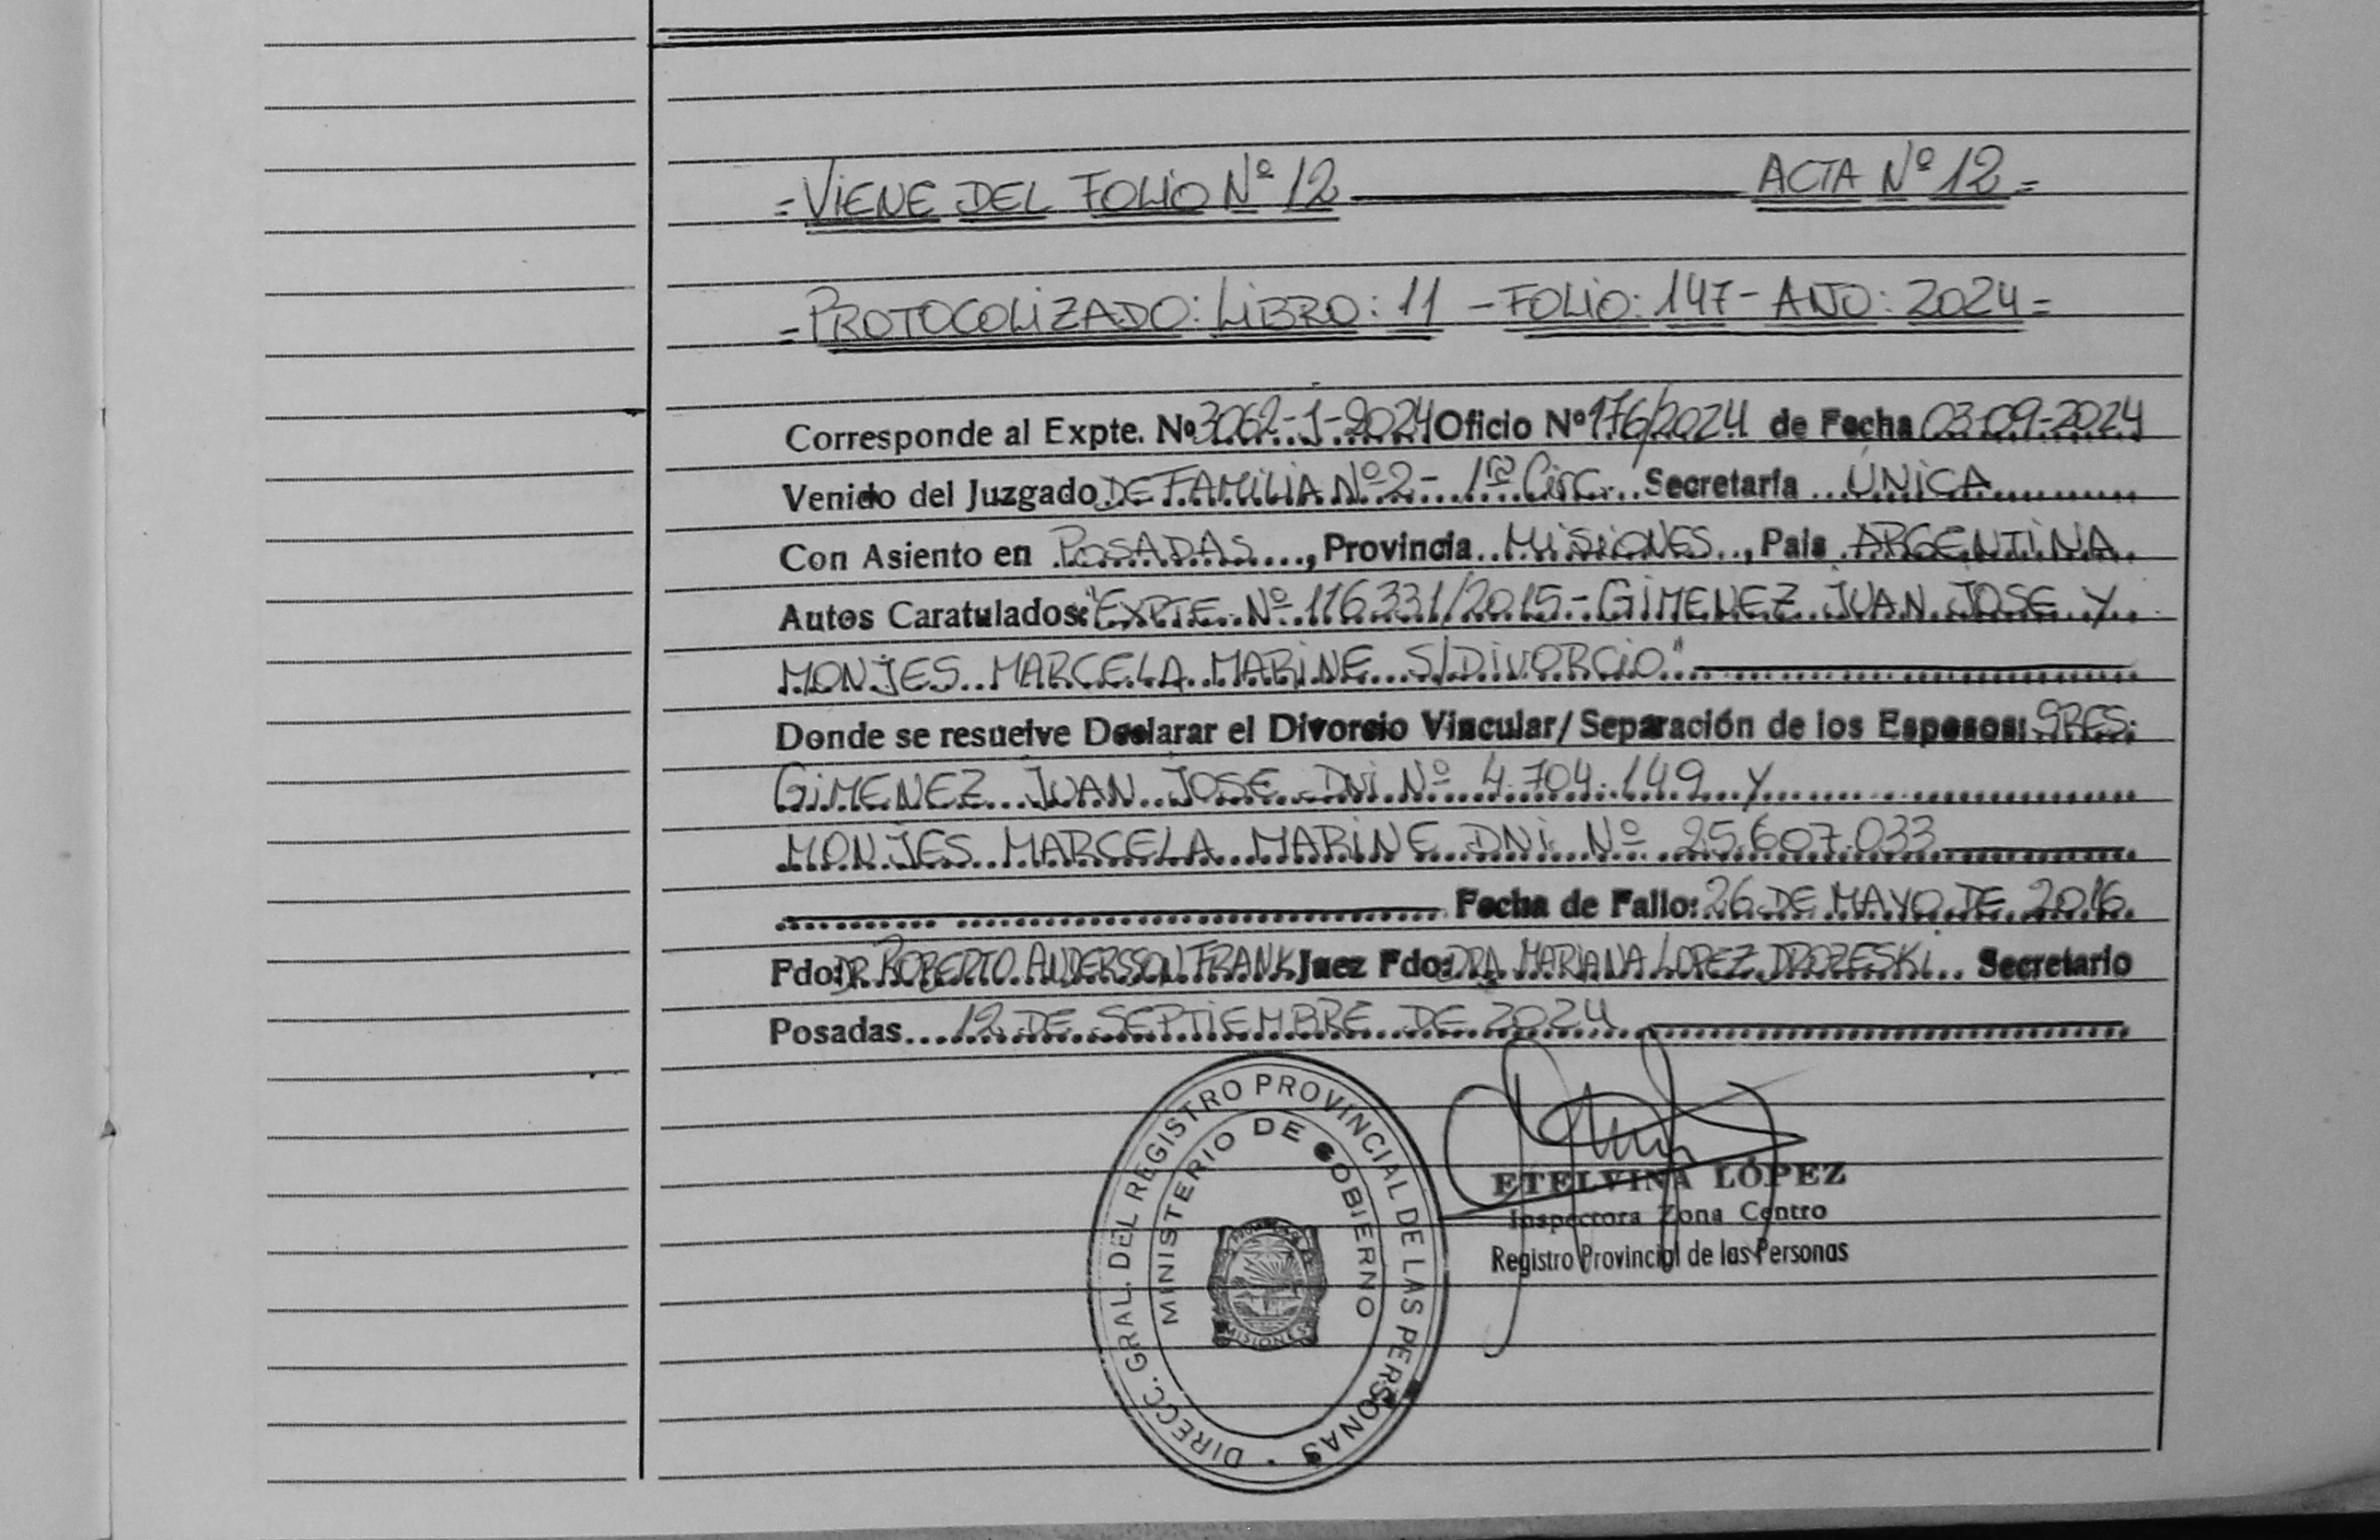 = VIENE DEL FOLIO Nº 12 ACTA Nº 12 =
= PROTOCOLIZADO: LIBRO: 11 - FOLIO: 147 - AÑO: 2024 =
Corresponde al Expte. Nº 3062-J-2024 Oficio Nº 176/2024 de Fecha 03-09-2024
Venido del Juzgado DE FAMILIA Nº 2 - 1ra Circ. Secretaría ÚNICA
Con Asiento en POSADAS, Provincia MISIONES, País ARGENTINA
Autos Caratulados: "EXPTE. Nº 116331/2015 - GIMENEZ JUAN JOSE Y
MONJES MARCELA MARINE S/DIVORCIO"
Donde se resuelve Declarar el Divorcio Vincular/Separación de los Esposos: SRES:
GIMENEZ JUAN JOSE DNI Nº 4.704.149 Y
MONJES MARCELA MARINE DNI Nº 25.607.033
Fecha de Fallo: 26 DE MAYO DE 2016
Fdo: DR. ROBERTO ANDERSSON FRANK Juez Fdo: DRA. MARIANA LOPEZ DROZESKI Secretario
Posadas 12 DE SEPTIEMBRE DE 2024
DIRECC. GRAL. DEL REGISTRO PROVINCIAL DE LAS PERSONAS
MINISTERIO DE GOBIERNO
MISIONES
ETELVINA LÓPEZ
Inspectora Zona Centro
Registro Provincial de las Personas